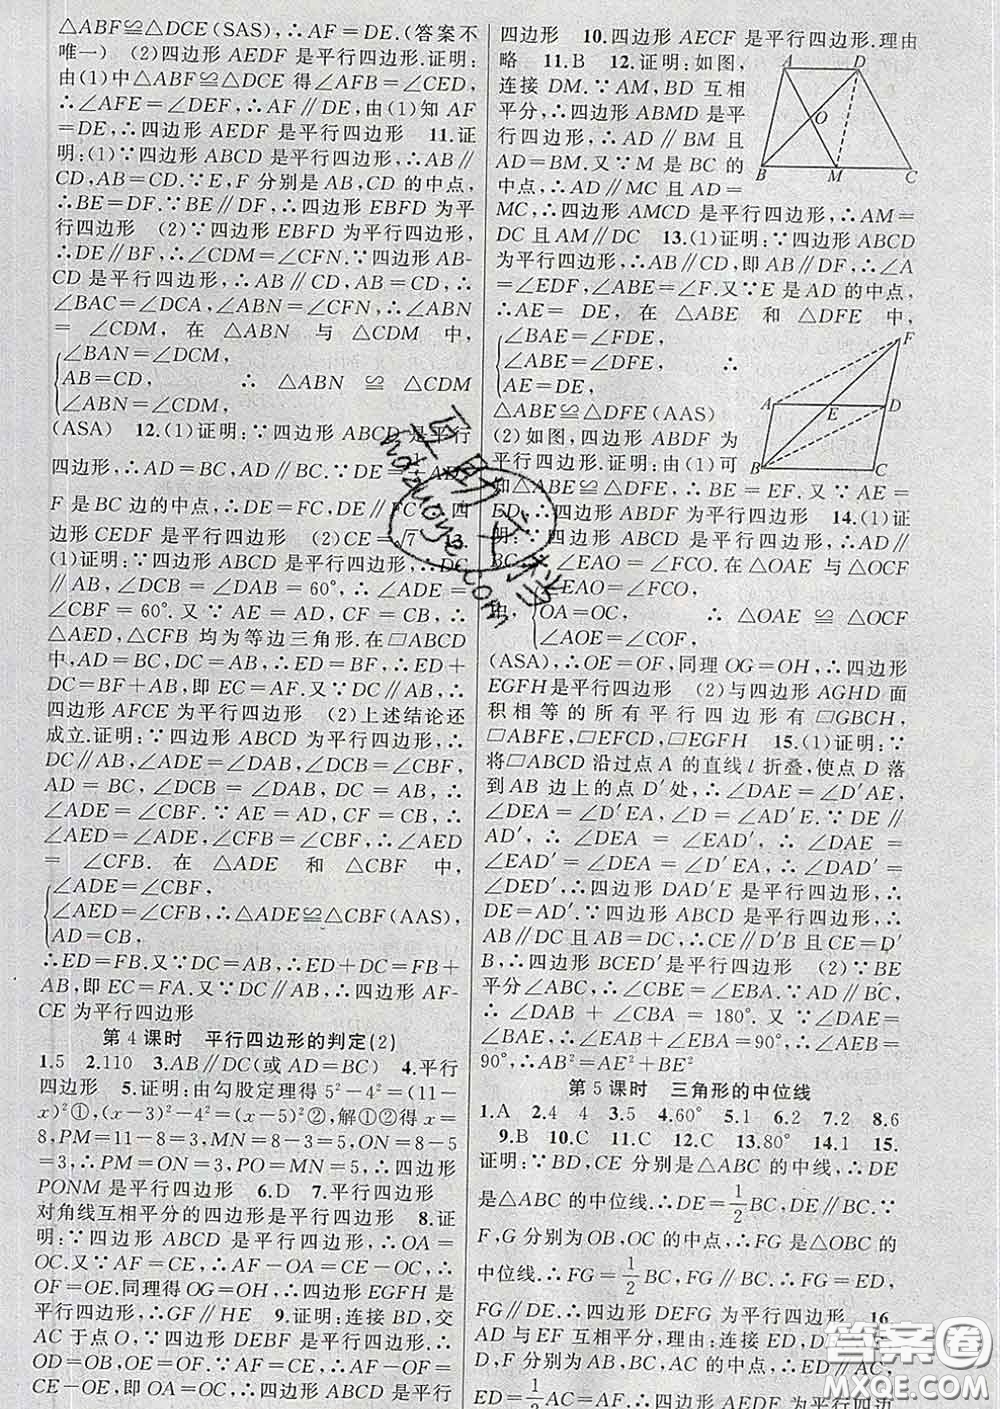 △ABF≌△DCE(SAS),∴AF=DE.(答案不
唯一) (2)四边形 AEDF 是平行四边形.证明:
由(1)中△ABF≌△DCE 得∠AFB=∠CED,
∴∠AFE=∠DEF,∴AF∥DE,由(1)知 AF
=DE,∴四边形 AEDF 是平行四边形 11.证
明:(1)∵四边形 ABCD 是平行四边形,∴AB∥
CD,AB=CD.∵E,F 分别是 AB,CD 的中点,
∴BE=DF.∵BE∥DF,∴四边形 EBFD 为平
行四边形 (2)∵四边形 EBFD 为平行四边形,
∴DE∥BF,∴∠CDM=∠CFN.∵四边形 AB-
CD 是平行四边形,∴AB∥CD,AB=CD,∴
∠BAC=∠DCA,∠ABN=∠CFN,∴∠ABN
=∠CDM, 在 △ABN 与 △CDM 中,
∠BAN=∠DCM,
AB=CD, ∴ △ABN ≌ △CDM
∠ABN=∠CDM,
(ASA) 12.(1)证明:∵四边形 ABCD 是平行
四边形,∴AD=BC,AD∥BC.∵DE= AD
F 是 BC 边的中点,∴DE=FC,DE∥FC 四
边形 CEDF 是平行四边形 (2)CE=√7 13.
(1)证明:∵四边形 ABCD 是平行四边形,∴DC
∥AB,∠DCB=∠DAB=60°,∴∠ADE=
∠CBF=60°.又∵AE=AD,CF=CB,∴
△AED,△CFB 均为等边三角形.在▱ABCD
中,AD=BC,DC=AB,∴ED=BF,∴ED+
DC=BF+AB,即 EC=AF.又∵DC∥AB,∴
四边形 AFCE 为平行四边形 (2)上述结论还
成立.证明:∵四边形 ABCD 为平行四边形,∴
AD=BC,∠DCB=∠DAB,DC=AB,∴
∠ADE=∠CBF.∵AE=AD,CF=CB,∴
∠AED=∠ADE,∠CFB=∠CBF,∴∠AED
=∠CFB. 在 △ADE 和 △CBF 中,
∠ADE=∠CBF,
∠AED=∠CFB,∴△ADE≌△CBF(AAS),
AD=CB,
∴ED=FB.又∵DC=AB,∴ED+DC=FB+
AB,即 EC=FA.又∵DC∥AB,∴四边形 AF-
CE 为平行四边形
第 4 课时 平行四边形的判定(2)
1.5 2.110 3.AB∥DC(或 AD=BC) 4.平行
四边形 5.证明:由勾股定理得 5²-4²=(11-
x)²①,(x-3)²-4²=(x-5)²②,解①②得 x=
8,PM=11-8=3,MN=8-3=5,ON=8-5
=3,∴PM=ON=3,PO=MN=5,∴四边形
PONM 是平行四边形 6.D 7.平行四边形
对角线互相平分的四边形是平行四边形 8.证
明:∵四边形 ABCD 是平行四边形,∴OA=
OC.又∵AF=CE,∴AF-OA=CE-OC,∴
OF=OE.同理得 OG=OH,∴四边形 EGFH 是
平行四边形,∴GF∥HE 9.证明:连接 BD,交
AC 于点 O,∵四边形 DEBF 是平行四边形,∴
OD=OB,OE=OF.又∵AF=CE,∴AF-OF=
CE-OE,即 OA=OC,∴四边形 ABCD 是平行
四边形 10.四边形 AECF 是平行四边形.理由
略 11.B 12.证明:如图,
连接 DM.∵AM,BD 互相
平分,∴四边形 ABMD 是平
行四边形,∴AD∥BM 且
AD=BM.又∵M 是 BC 的
中点,∴AD∥MC 且 AD=
MC,∴四边形 AMCD 是平行四边形,∴AM=
DC 且 AM∥DC 13.(1)证明:∵四边形 ABCD
为平行四边形,∴AB∥CD,即 AB∥DF,∴∠A
=∠EDF,∠ABE=∠F.又∵E 是 AD 的中点,
∴AE=DE, 在 △ABE 和 △DFE 中,
∠BAE=∠FDE,
∠ABE=∠DFE, ∴
AE=DE,
△ABE≌△DFE(AAS)
(2)如图,四边形 ABDF 为
平行四边形.证明:由(1)可
知△ABE≌△DFE,∴BE=EF.又∵AE=
ED,∴四边形 ABDF 为平行四边形 14.(1)证
明:∵ ▱ABCD 中,AD∥
BC,∴∠EAO=∠FCO.在△OAE 与△OCF
中, ∠EAO=∠FCO,
OA=OC, ∴ △OAE ≌ △OCF
∠AOE=∠COF,
(ASA),∴OE=OF,同理 OG=OH,∴四边形
EGFH 是平行四边形 (2)与四边形 AGHD 面
积相等的所有平行四边形有▱GBCH,
▱ABFE,▱EFCD,▱EGFH 15.(1)证明:∵
将▱ABCD 沿过点 A 的直线 l 折叠,使点 D 落
到 AB 边上的点 D′处,∴∠DAE=∠D′AE,
∠DEA=∠D′EA,∠D=∠AD′E.∵DE∥
AD′,∴∠DEA=∠EAD′,∴∠DAE=
∠EAD′=∠DEA=∠D′EA,∴∠DAD′=
∠DED′,∴四边形 DAD′E 是平行四边形,∴
DE=AD′.∵四边形 ABCD 是平行四边形,∴
AB∥DC 且 AB=DC,∴CE∥D′B 且 CE=D′
B,∴四边形 BCED′是平行四边形 (2)∵BE
平分∠ABC,∴∠CBE=∠EBA.∵AD∥BC,
∴∠DAB+∠CBA=180°.又∵∠DAE=
∠BAE,∴∠EAB+∠EBA=90°,∴∠AEB=
90°,∴AB²=AE²+BE²
第 5 课时 三角形的中位线
1.A 2.4 4 3.5 4.60° 5.1 6.2 7.2 8.6
9.B 10.C 11.C 12.C 13.80° 14.1 15.
证明:∵BD,CE 分别是△ABC 的中线,∴DE
是△ABC 的中位线,∴DE=1/2BC,DE∥BC.∵
F,G 分别为 OB,OC 的中点,∴FG 是△OBC 的
中位线.∴FG=1/2BC,FG∥BC,∴FG=ED,
FG∥DE.∴四边形 DEFG 为平行四边形 16.
AD 与 EF 互相平分,理由:连接 ED,DF.∵E,
D,F 分别为 AB,BC,AC 的中点,∴ED∥AC,
ED=1/2AC=AF.∴四边形 AEDF 为平行四边
A
D
O
B
M
C
F
A
E
D
B
C
hdzuoye.com
答案圈
MXQE.COM